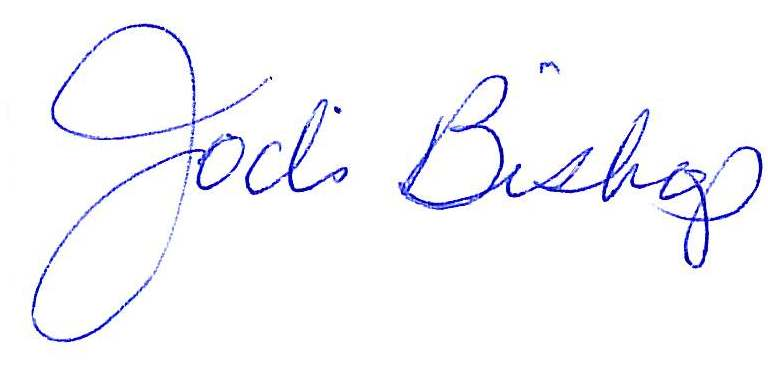 Jodi Bishop